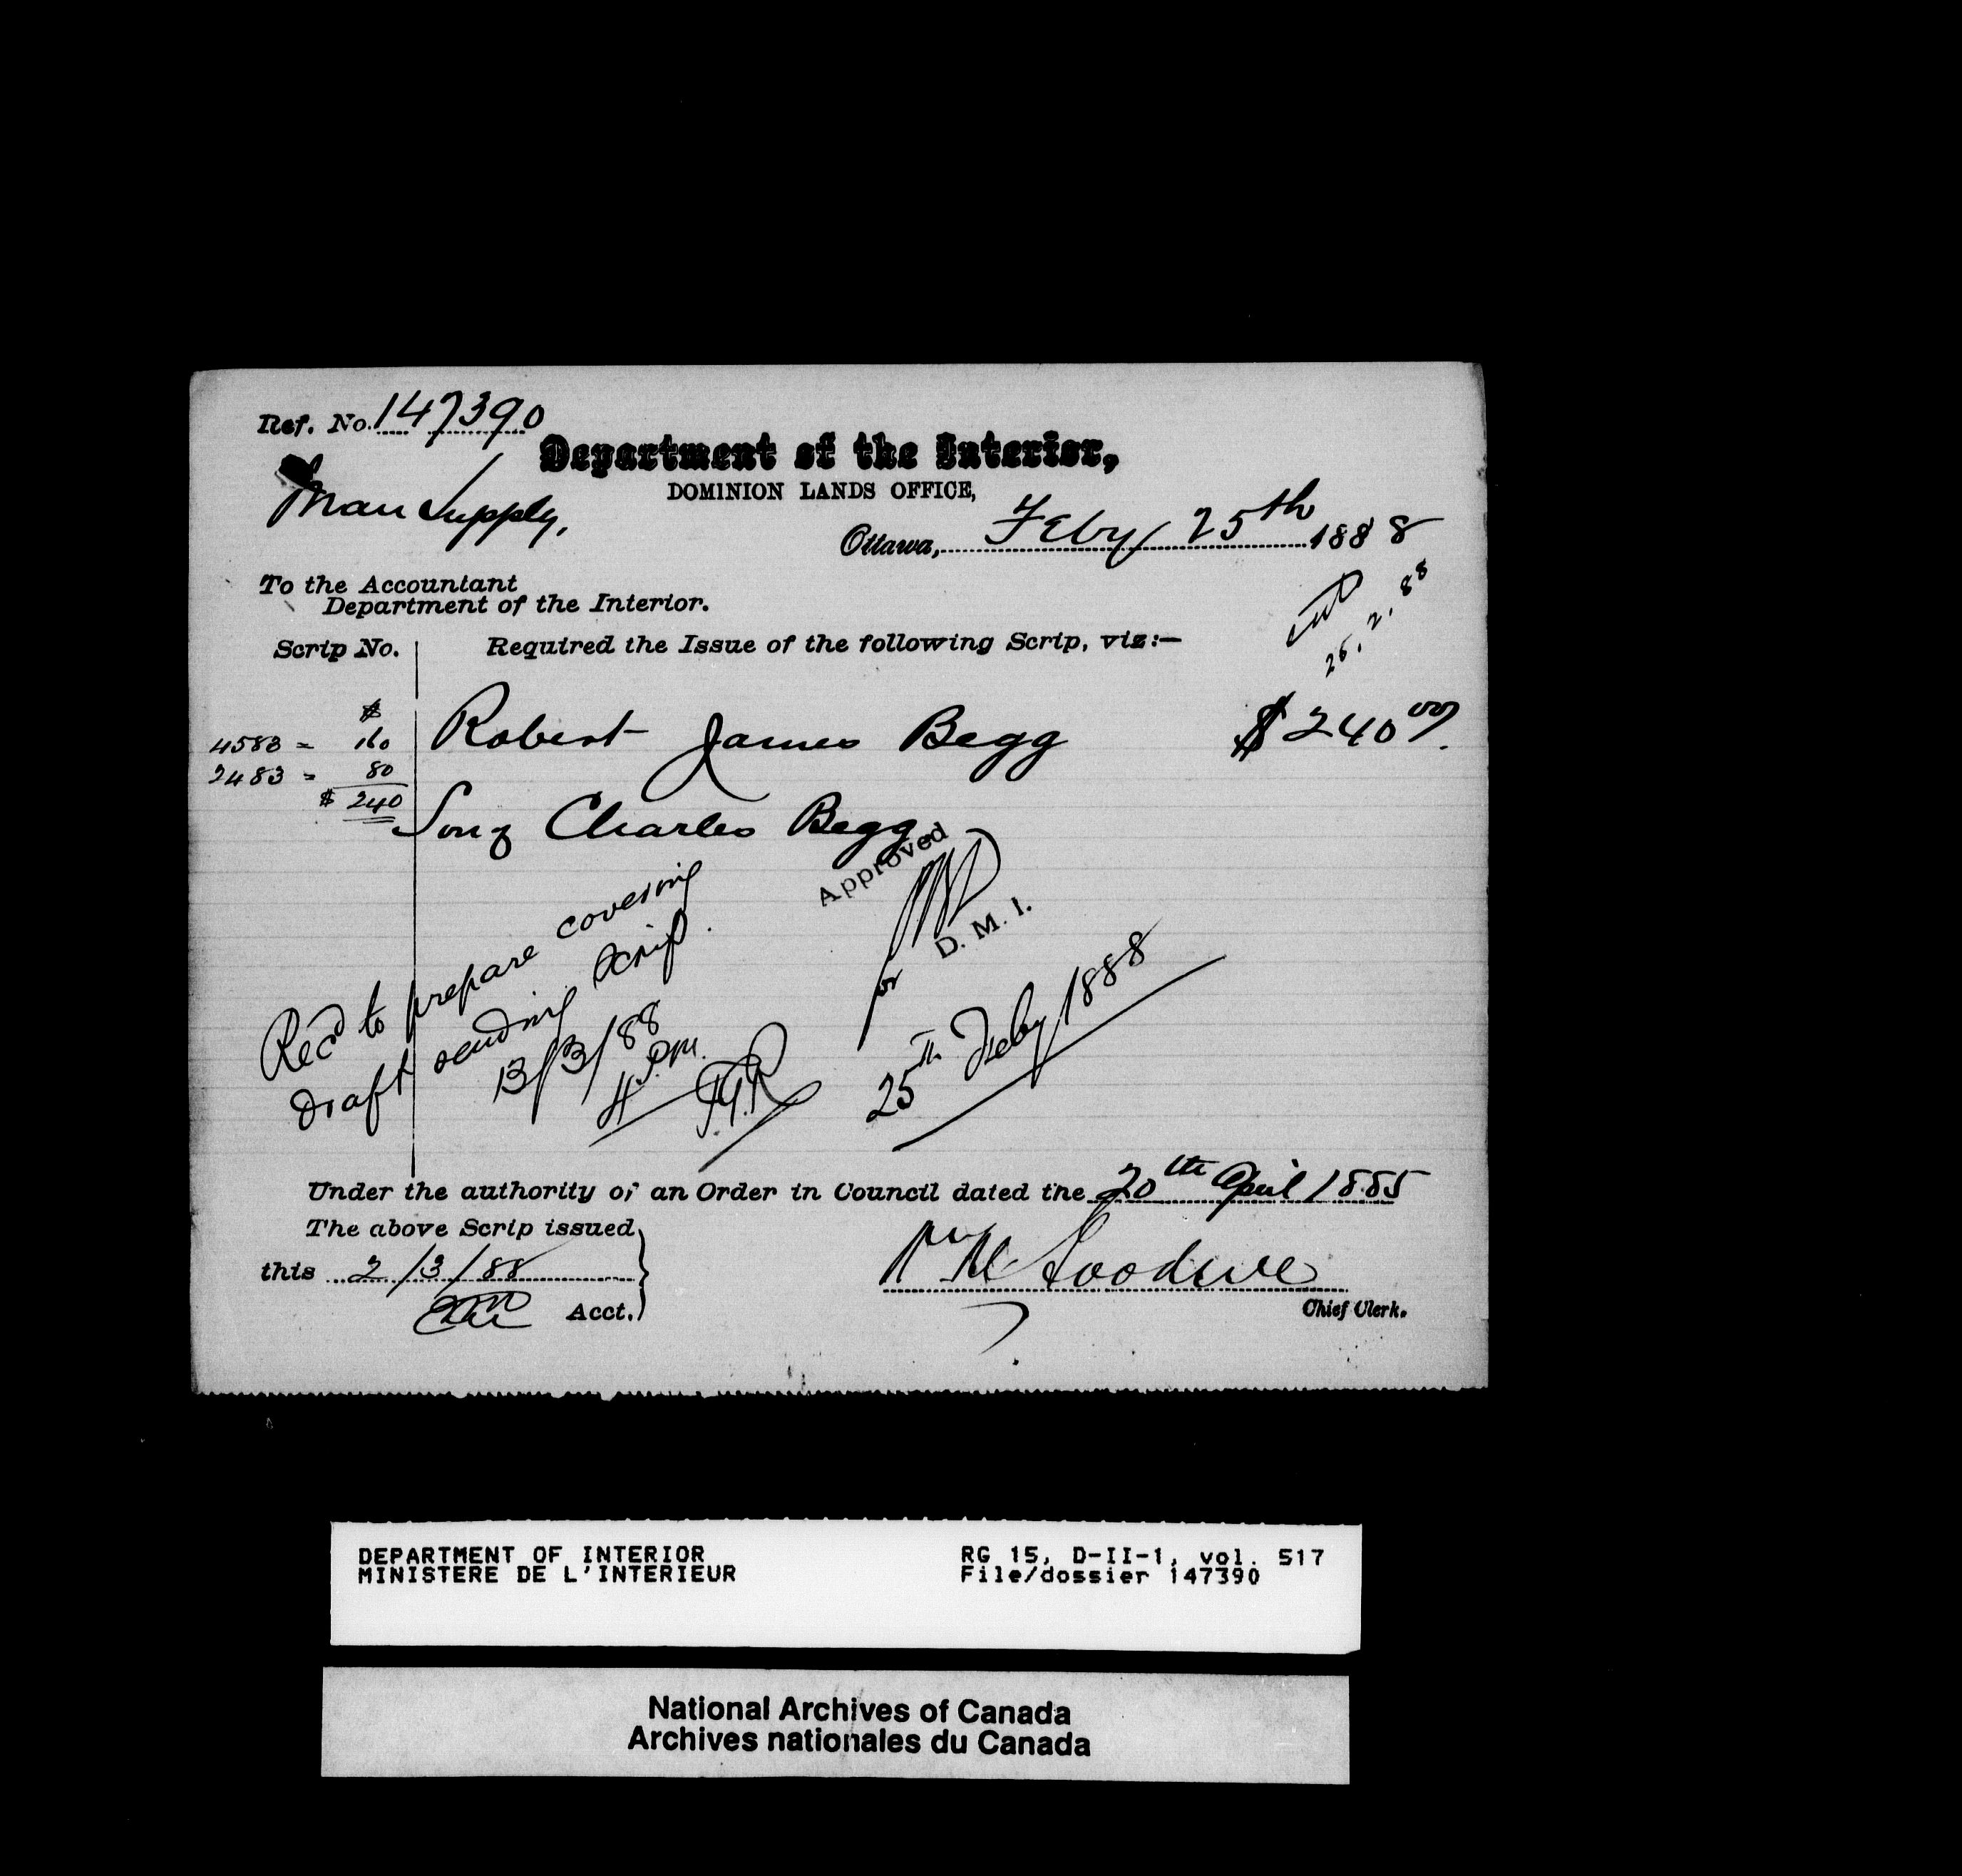 Ref. No. 147390
Department of the Interior,
DOMINION LANDS OFFICE,
Man Supply,
Ottawa, Feby 25th 1888
To the Accountant
Department of the Interior.
26.2.88
Scrip No. Required the Issue of the following Scrip, viz:—
$
4583 = 160 Robert James Begg $240 00
2483 = 80
$ 240
Son of Charles Begg
Approved
for D. M. I.
25th Feby 1888
Rec'd to prepare covering
draft sending Scrip.
13/3/88
4 P.M.
Under the authority of an Order in Council dated the 20th April 1885
The above Scrip issued
this 2/3/88
Acct.
Chief Clerk.
DEPARTMENT OF INTERIOR RG 15, D-II-1, vol. 517
MINISTERE DE L'INTERIEUR File/dossier 147390
National Archives of Canada
Archives nationales du Canada